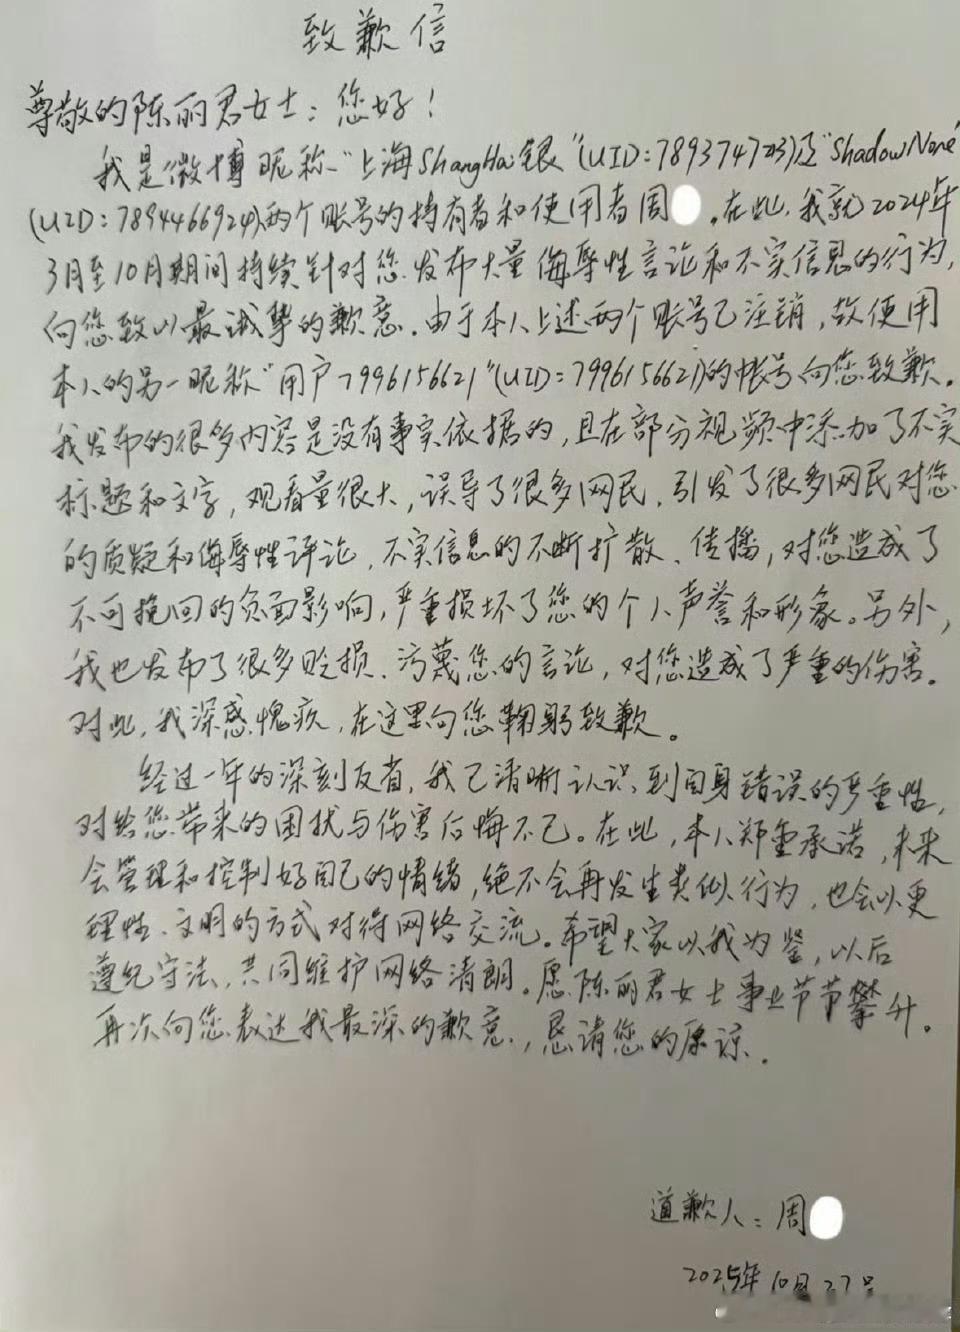 致歉信
尊敬的陈丽君女士：您好！
我是微博昵称"上海ShangHai银"(UID:7893747213)及"ShadowNone"
(UID:7894466924)两个账号的持有者和使用者周 。在此，我就2024年
3月至10月期间持续针对您发布大量侮辱性言论和不实信息的行为，
向您致以最诚挚的歉意。由于本人上述两个账号已注销，故使用
本人的另一昵称"用户7996156621"(UID:7996156621)的帐号向您致歉。
我发布的很多内容是没有事实依据的，且在部分视频中添加了不实
标题和文字，观看量很大，误导了很多网民，引发了很多网民对您
的质疑和侮辱性评论，不实信息的不断扩散、传播，对您造成了
不可挽回的负面影响，严重损坏了您的个人声誉和形象。另外，
我也发布了很多贬损、污蔑您的言论，对您造成了严重的伤害。
对此，我深感愧疚，在这里向您鞠躬致歉。
经过一年的深刻反省，我已清晰认识到自身错误的严重性，
对给您带来的困扰与伤害后悔不已。在此，本人郑重承诺，未来
会管理和控制好自己的情绪，绝不会再发生类似行为，也会以更
理性、文明的方式对待网络交流。希望大家以我为鉴，以后
遵纪守法，共同维护网络清朗。愿陈丽君女士事业节节攀升。
再次向您表达我最深的歉意，恳请您的原谅。
道歉人：周
2025年10月27号